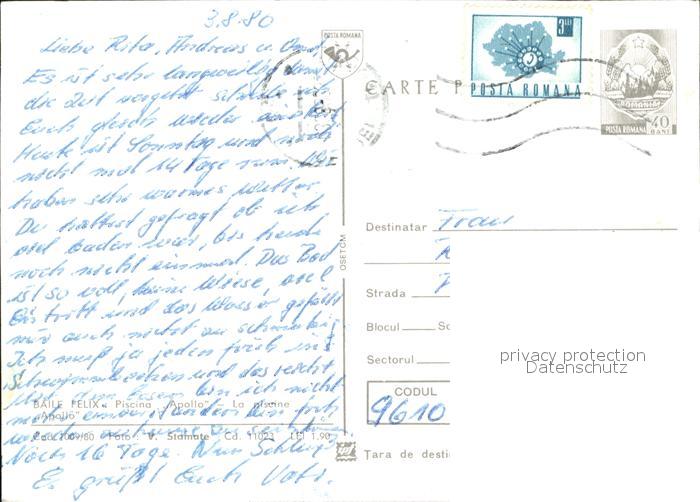 3.8.80
Liebe Rita, Andreas u.
Es ist sehr langweilig
die Zeit vergeht
Euch gleich wieder
Heute ist Sonntag und noch
nicht mal 14 Tage rum. Wir
haben sehr warmes Wetter.
Du hattest gefragt ob ich
viel baden wäre, bis heute
noch nicht einmal. Das Bad
ist so voll, keine Wiese, viel
und das Wasser gefällt
mir auch nicht zu
Ich muß ja jeden früh ins
Schwimmbecken und das reicht
bin ich nicht
Noch 16 Tage. Nun Schluß
Es grüßt Euch Vati.
BĂILE FELIX. Piscina „Apollo" La piscine
„Apollo"
Cod. 1009/80 Foto: V. Stamate Cd. 11023 LEI 1,90
OSETCM
POSTA ROMANA
CARTE P
3 LEI
POSTA ROMANA
POSTA ROMANA
40
BANI
Destinatar Frau
Strada
Blocul Sc
Sectorul
CODUL
9610
Tara de desti
privacy protection
Datenschutz